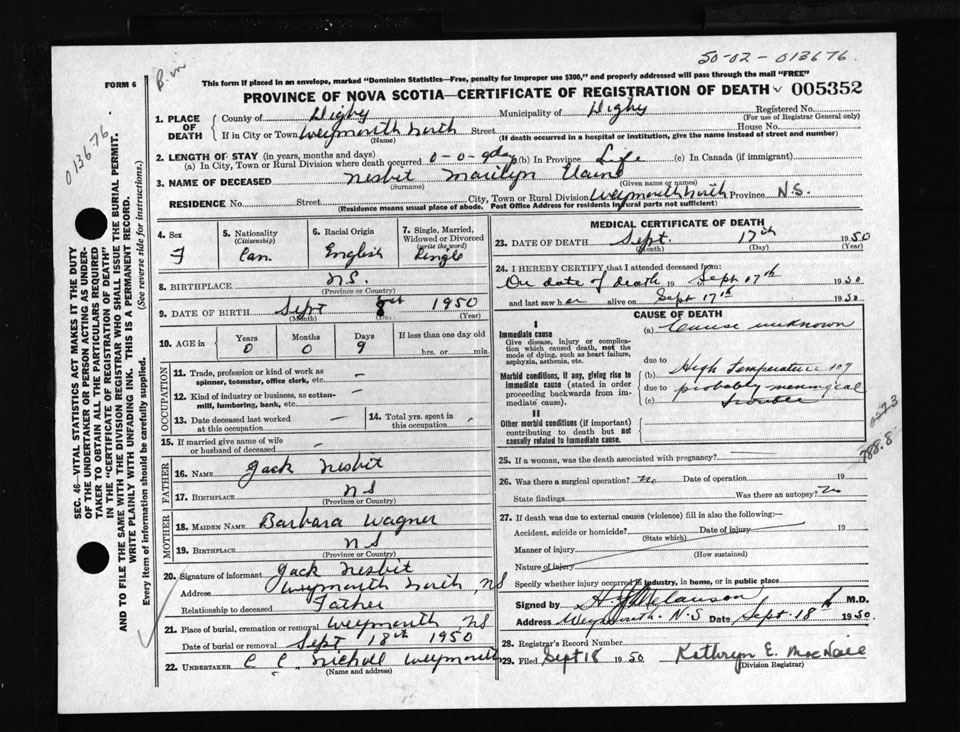 50-02-013676
FORM 6
B.m
This form if placed in an envelope, marked "Dominion Statistics—Free, penalty for improper use $300," and properly addressed will pass through the mail "FREE"
PROVINCE OF NOVA SCOTIA—CERTIFICATE OF REGISTRATION OF DEATH 005352
1. PLACE OF DEATH
County of Digby Municipality of Digby Registered No.
(For use of Registrar General only)
If in City or Town Weymouth North Street House No.
(Name) (If death occurred in a hospital or institution, give the name instead of street and number)
2. LENGTH OF STAY (in years, months and days)
(a) In City, Town or Rural Division where death occurred 0-0-9 days (b) In Province Life (c) In Canada (if immigrant)
3. NAME OF DECEASED Nesbit Marilyn Elaine
(Surname) (Given name or names)
RESIDENCE No. Street City, Town or Rural Division Weymouth North Province N.S.
(Residence means usual place of abode. Post Office Address for residents in rural parts not sufficient)
4. Sex
F
5. Nationality
(Citizenship)
Can.
6. Racial Origin
English
7. Single, Married, Widowed or Divorced
(write the word)
Single
8. BIRTHPLACE N.S.
(Province or Country)
9. DATE OF BIRTH Sept 8th 1950
(Month) (Day) (Year)
10. AGE in
Years Months Days If less than one day old
0 0 9 hrs. or min.
OCCUPATION
11. Trade, profession or kind of work as spinner, teamster, office clerk, etc. —
12. Kind of industry or business, as cotton-mill, lumbering, bank, etc. —
13. Date deceased last worked at this occupation —
14. Total yrs. spent in this occupation -
15. If married give name of wife or husband of deceased -
FATHER
16. NAME Jack Nesbit
17. BIRTHPLACE N S
(Province or Country)
MOTHER
18. MAIDEN NAME Barbara Wagner
19. BIRTHPLACE N S
(Province or Country)
20. Signature of informant Jack Nesbit
Address Weymouth North, NS
Relationship to deceased Father
21. Place of burial, cremation or removal Weymouth NS
Date of burial or removal Sept 18th 1950
22. UNDERTAKER C C. Nicholl Weymouth
(Name and address)
MEDICAL CERTIFICATE OF DEATH
23. DATE OF DEATH Sept. 17th 1950
(Month) (Day) (Year)
24. I HEREBY CERTIFY that I attended deceased from:
On date of death 19 to Sept 17th 1950
and last saw her alive on Sept 17th 1950
CAUSE OF DEATH
I
Immediate cause
Give disease, injury or complication which caused death, not the mode of dying, such as heart failure, asphyxia, asthenia, etc.
(a) Cause unknown
due to
Morbid conditions, if any, giving rise to immediate cause (stated in order proceeding backwards from immediate cause).
(b) High temperature 107
due to probably meningeal
(c) trouble
II
Other morbid conditions (if important) contributing to death but not causally related to immediate cause.
788.8
25. If a woman, was the death associated with pregnancy?
26. Was there a surgical operation? No Date of operation 19
State findings Was there an autopsy? No
27. If death was due to external causes (violence) fill in also the following:—
Accident, suicide or homicide? Date of injury 19
(State which)
Manner of injury
(How sustained)
Nature of injury
Specify whether injury occurred in industry, in home, or in public place
Signed by H J Melanson M.D.
Address Weymouth. N.S Date Sept. 18th 1950
28. Registrar's Record Number
29. Filed Sept 18 1950 Kathryn E. MacNeil
(Division Registrar)
013676.
SEC. 46—VITAL STATISTICS ACT MAKES IT THE DUTY
OF THE UNDERTAKER OR PERSON ACTING AS UNDER-
TAKER TO OBTAIN ALL THE PARTICULARS REQUIRED
IN THE "CERTIFICATE OF REGISTRATION OF DEATH"
AND TO FILE THE SAME WITH THE DIVISION REGISTRAR WHO SHALL ISSUE THE BURIAL PERMIT.
WRITE PLAINLY WITH UNFADING INK. THIS IS A PERMANENT RECORD.
Every item of information should be carefully supplied. (See reverse side for instructions.)